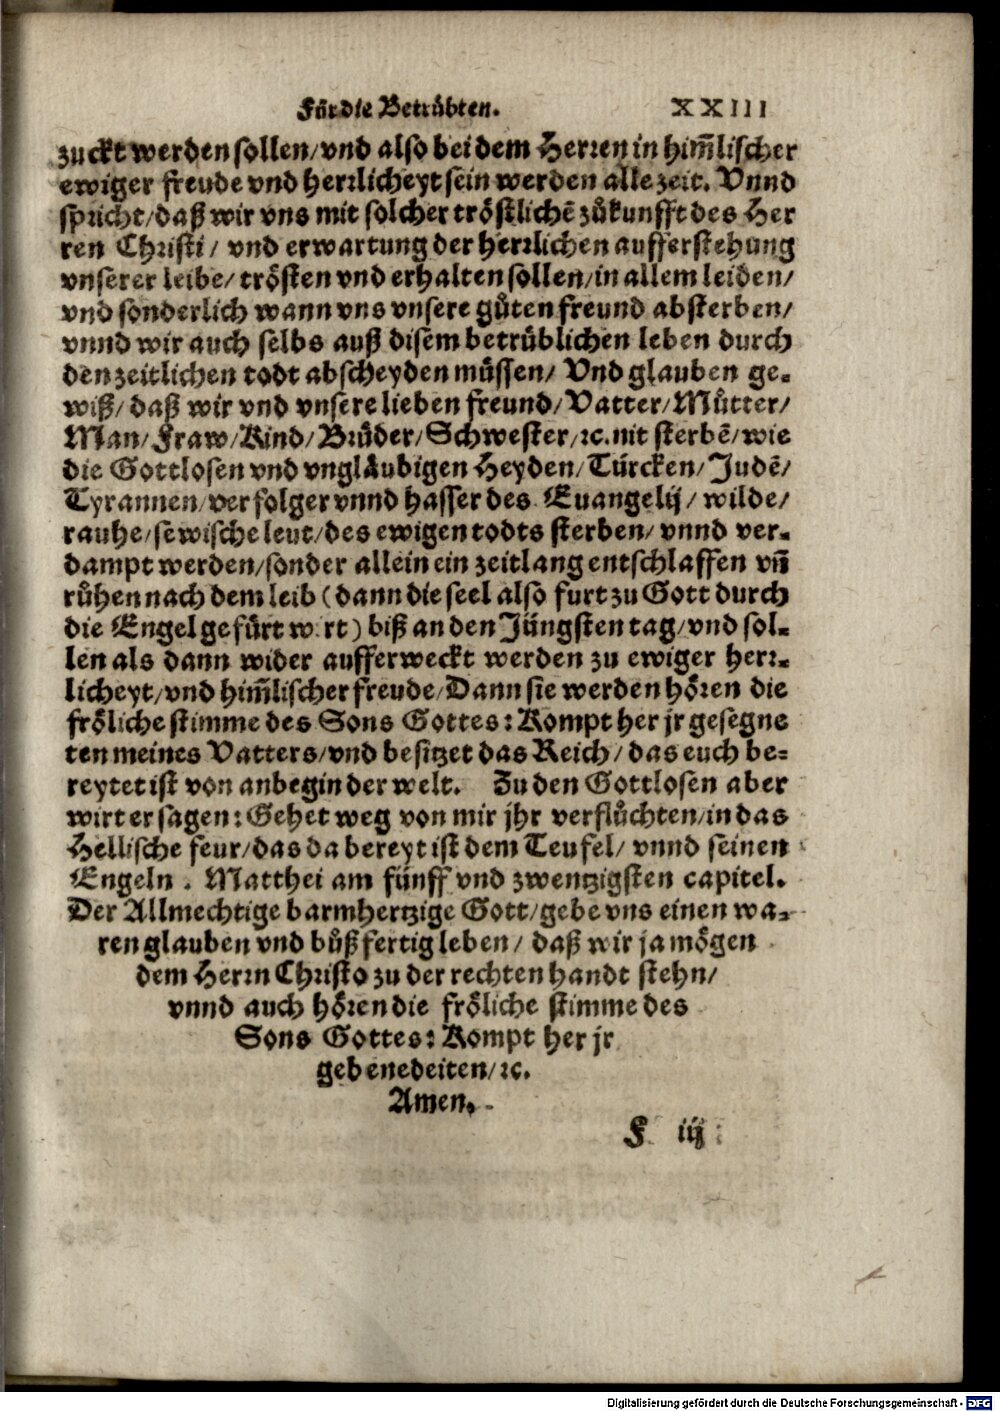 Für die Betrübten. XXIII
zuckt werden sollen/ vnd also bei dem Herren in him̃lischer
ewiger freude vnd herrlicheyt sein werden alle zeit. Vnnd
spricht/ daß wir vns mit solcher tröstlichẽ zůkunfft des Her
ren Christi/ vnd erwartung der herrlichen aufferstehung
vnserer leibe/ trösten vnd erhalten sollen/ in allem leiden/
vnd sonderlich wann vns vnsere gůten freund absterben/
vnnd wir auch selbs auß disem betrüblichen leben durch
den zeitlichen todt abscheyden müssen/ Vnd glauben ge-
wiß/ daß wir vnd vnsere lieben freund/ Vatter/ Můtter/
Man/ Fraw/ Kind/ Brůder/ Schwester/ ꝛc. nit sterbẽ/ wie
die Gottlosen vnd vngläubigen Heyden/ Türcken/ Judẽ/
Tyrannen/ verfolger vnnd hasser des Euangelij/ wilde/
rauhe/ sewische leut/ des ewigen todts sterben/ vnnd ver-
dampt werden/ sonder allein ein zeitlang entschlaffen vñ
růhen nach dem leib (dann die seel also furt zu Gott durch
die Engel gefürt wirt) biß an den Jüngsten tag/ vnd sol-
len als dann wider aufferweckt werden zu ewiger herr-
licheyt/ vnd him̃lischer freude/ Dann sie werden hören die
fröliche stimme des Sons Gottes: Kompt her jr gesegne
ten meines Vatters/ vnd besitzet das Reich/ das euch be-
reytet ist von anbegin der welt. Zu den Gottlosen aber
wirt er sagen: Gehet weg von mir jhr verflůchten/ in das
Hellische feur/ das da bereyt ist dem Teufel/ vnnd seinen
Engeln. Matthei am fünff vnd zwentzigsten capitel.
Der Allmechtige barmhertzige Gott/ gebe vns einen wa-
ren glauben vnd bůßfertig leben/ daß wir ja mögen
dem Herrn Christo zu der rechten handt stehn/
vnnd auch hören die fröliche stimme des
Sons Gottes: Kompt her jr
gebenedeiten/ ꝛc.
Amen.
F iij
Digitalisierung gefördert durch die Deutsche Forschungsgemeinschaft - DFG